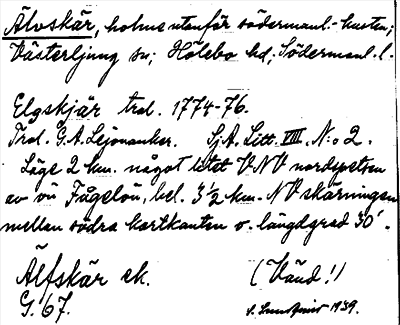 Älvskär, holme utanför södermanl.-kusten;
Västerljung sn; Hölebo hd; Södermanl. l.
Elgskjär trol. 1774-76.
Trol. G.A. Lejonanker. Sj.A. Litt. VIII. N:o 2.
Läge 2 km. något litet VNV nordspetsen
av ön Fågelön, bel. 3½ km. NV skärningen
mellan södra kartkanten o. längdgrad 30'.
Älfskär ek. (Vänd!)
G. 67. 1939.